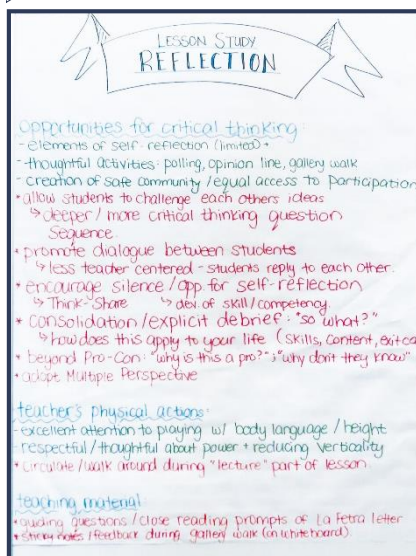 LESSON STUDY
REFLECTION
opportunities for critical thinking
- elements of self-reflection (limited) +
- thoughtful activities: polling, opinion line, gallery walk
- creation of safe community / equal access to participation
* allow students to challenge each others ideas
↳ deeper / more critical thinking question
sequence.
* promote dialogue between students
↳ less teacher centered - students reply to each other.
* encourage silence / opp. for self-reflection
↳ Think-Share ↳ dev. of skill/competency.
* consolidation / explicit debrief: "so what?"
↳ how does this apply to your life (skills, content, exit ca
* beyond Pro-Con: "why is this a pro?"; "why don't they know"
* adopt Multiple Perspective
teacher's physical actions:
- excellent attention to playing w/ body language / height
- respectful / thoughtful about power + reducing verticality
* circulate / walk around during "lecture" part of lesson
teaching material:
* guiding questions / close reading prompts of La Fetra letter
* sticky notes / feedback during gallery walk (on whiteboard).